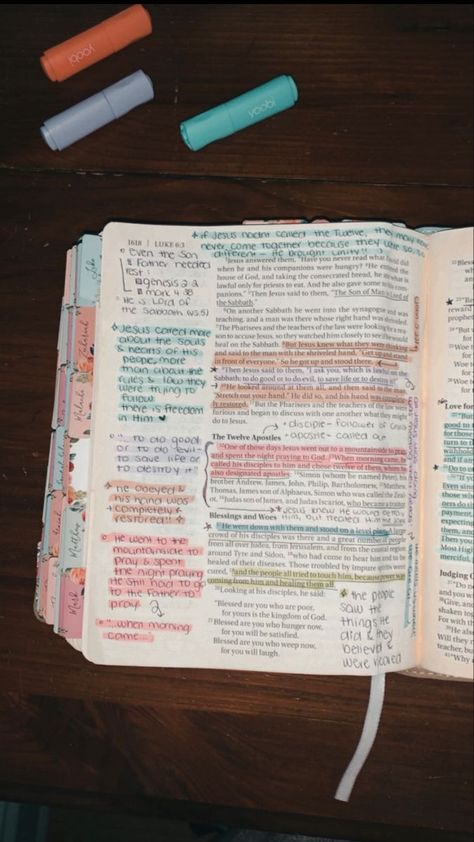 yoobi
yoobi
yoobi
1618 | LUKE 6:3
* if Jesus hadnt called the Twelve, they may have
never come together because they were so so
different - He brought unity!! :)
Even the Son
& Father needed
rest:
genesis 2:2
mark 4:38
He is LORD of
the Sabbath (v5.)
Jesus cared more
about the souls
& hearts of His
people more
than about the
rules & how they
were trying to
follow
there is freedom
in Him
"... to do good
or to do evil-
to save life or
to destroy it"
he obeyed &
his hand was
completely
restored!!
He went to the
mountainside to
pray & spent
the night praying
He still had to go
to the Father to
pray
"...when morning
came...
Jesus answered them, "Have you never read what David did
when he and his companions were hungry? 4He entered the
house of God, and taking the consecrated bread, he ate what is
lawful only for priests to eat. And he also gave some to his com-
panions." 5Then Jesus said to them, "The Son of Man is Lord of
the Sabbath."
6On another Sabbath he went into the synagogue and was
teaching, and a man was there whose right hand was shriveled.
7The Pharisees and the teachers of the law were looking for a rea-
son to accuse Jesus, so they watched him closely to see if he would
heal on the Sabbath. 8But Jesus knew what they were thinking
and said to the man with the shriveled hand, "Get up and stand
in front of everyone." So he got up and stood there.
9Then Jesus said to them, "I ask you, which is lawful on the
Sabbath: to do good or to do evil, to save life or to destroy it?"
10He looked around at them all, and then said to the man,
"Stretch out your hand." He did so, and his hand was complete-
ly restored. 11But the Pharisees and the teachers of the law were
furious and began to discuss with one another what they might
do to Jesus.
disciple - follower of Christ
apostle - called out
The Twelve Apostles
12One of those days Jesus went out to a mountainside to pray,
and spent the night praying to God. 13When morning came, he
called his disciples to him and chose twelve of them, whom he
also designated apostles: 14Simon (whom he named Peter), his
brother Andrew, James, John, Philip, Bartholomew, 15Matthew,
Thomas, James son of Alphaeus, Simon who was called the Zeal-
ot, 16Judas son of James, and Judas Iscariot, who became a traitor.
Jesus knew He would betray
Him, but treated Him the same
Blessings and Woes
17He went down with them and stood on a level place. A large
crowd of his disciples was there and a great number of people
from all over Judea, from Jerusalem, and from the coastal region
around Tyre and Sidon, 18who had come to hear him and to be
healed of their diseases. Those troubled by impure spirits were
cured, 19and the people all tried to touch him, because power was
coming from him and healing them all.
20Looking at his disciples, he said:
"Blessed are you who are poor,
for yours is the kingdom of God.
21Blessed are you who hunger now,
for you will be satisfied.
Blessed are you who weep now,
for you will laugh.
the people
saw the
things He
did & they
believed &
were healed
Luke
Matthew
Mark
Love for
Judging